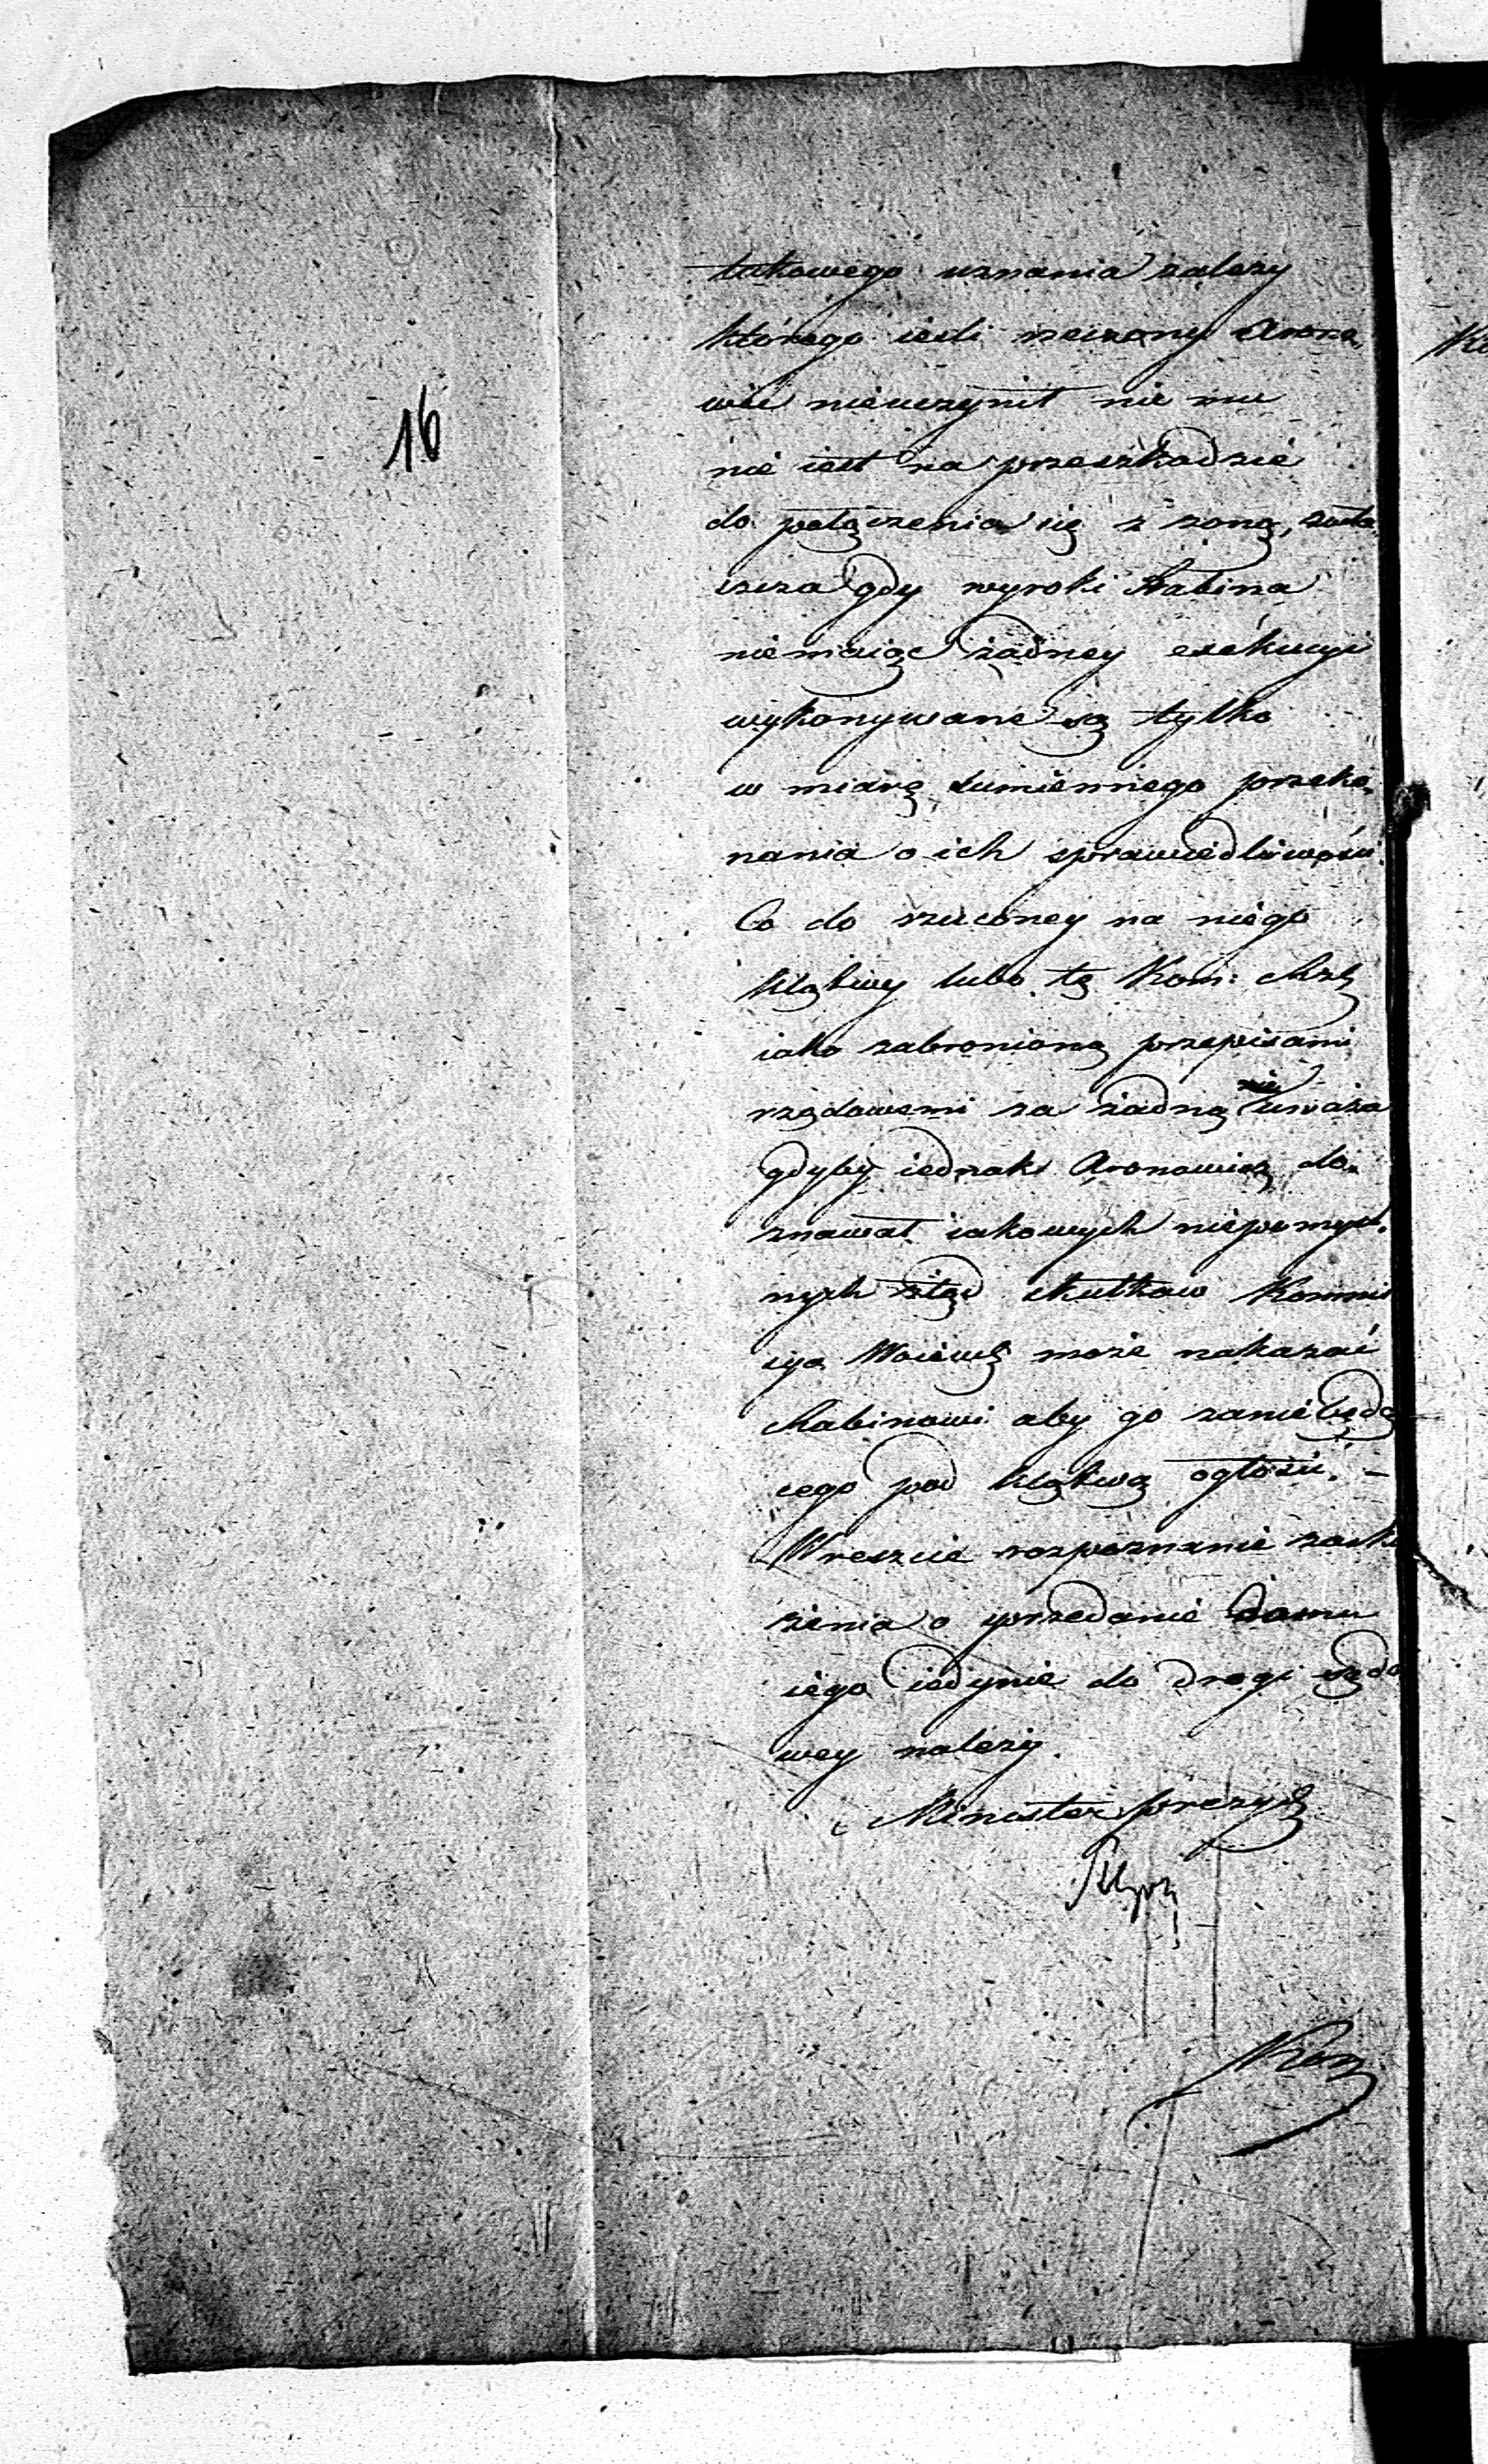 takowego uznania zależy
którego ieśli rzeczony Arono„
wicz nieuczynił nic mu
nie iest na przeszkodzie
do połączenia się z żoną, zwła„
szcza gdy wyroki Rabina
niemaiąc żadney exekucyi
wykonywane są tylko
w miarę sumiennego przeko„
nania o ich sprawiedliwości
Co do rzuconey na niego
klątwy lubo tę Kom:
iako zabronioną przepisami
rządowemi za żadną nie uważa
gdyby iednak Aronowicz do„
znawał iakowych niepomyśl„
nych ztąd skutków Kommis
sya Woiewdz może nakazać
Rabinowi aby go zanie będą
cego pod klątwą ogłosił. –
Wreszcie rozpoznanie zaska
rżenia o sprzedanie domu
iego iedynie do drogi sądo
wey należy.
Minister Prezyd
16